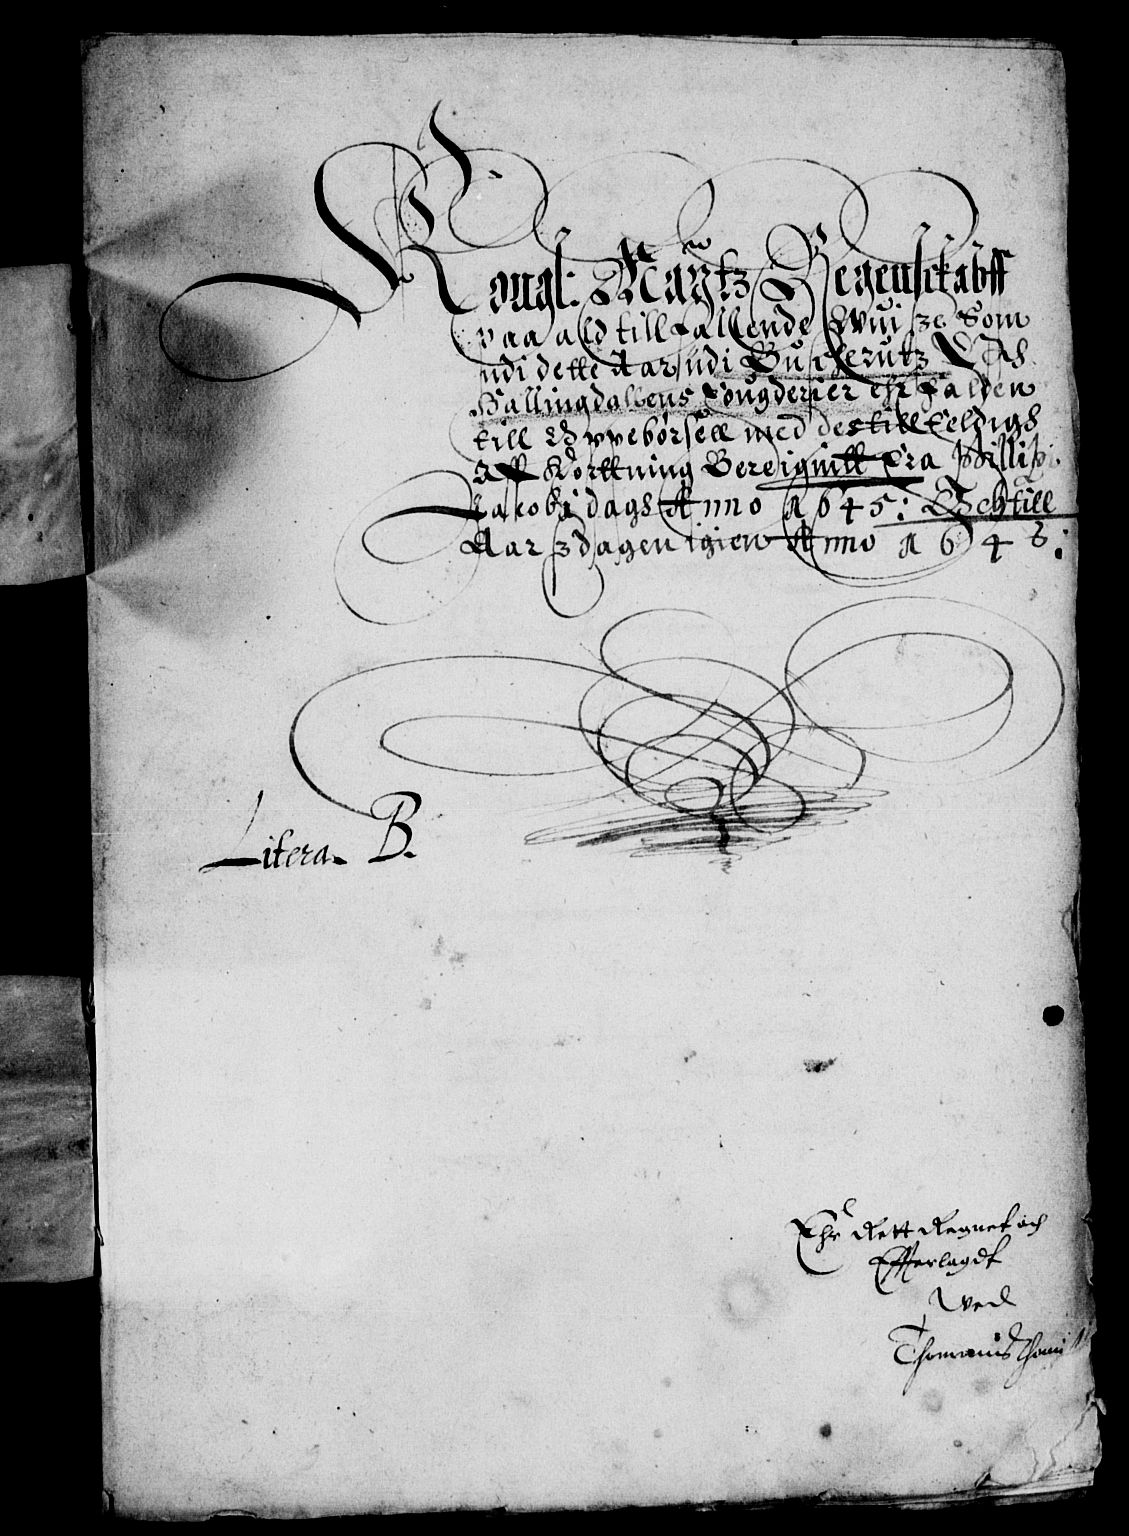 Kongl: Maÿtz Regenskabff
paa ald tillfallende Wuisze Som
udi dette Aar udi Buscherutz Och
Hallingdallens fougderier ehr falden
till Oppebörsell med des tillfeldigh
Aff Kortning Beregnitt fra Phillipi
Jacobi dagh Anno 1645: Och till
Aarszdagen igien Anno 1646:
Litera. B.
Ehr Rett Regnet och
Efferlagdt
Wed
Thomas